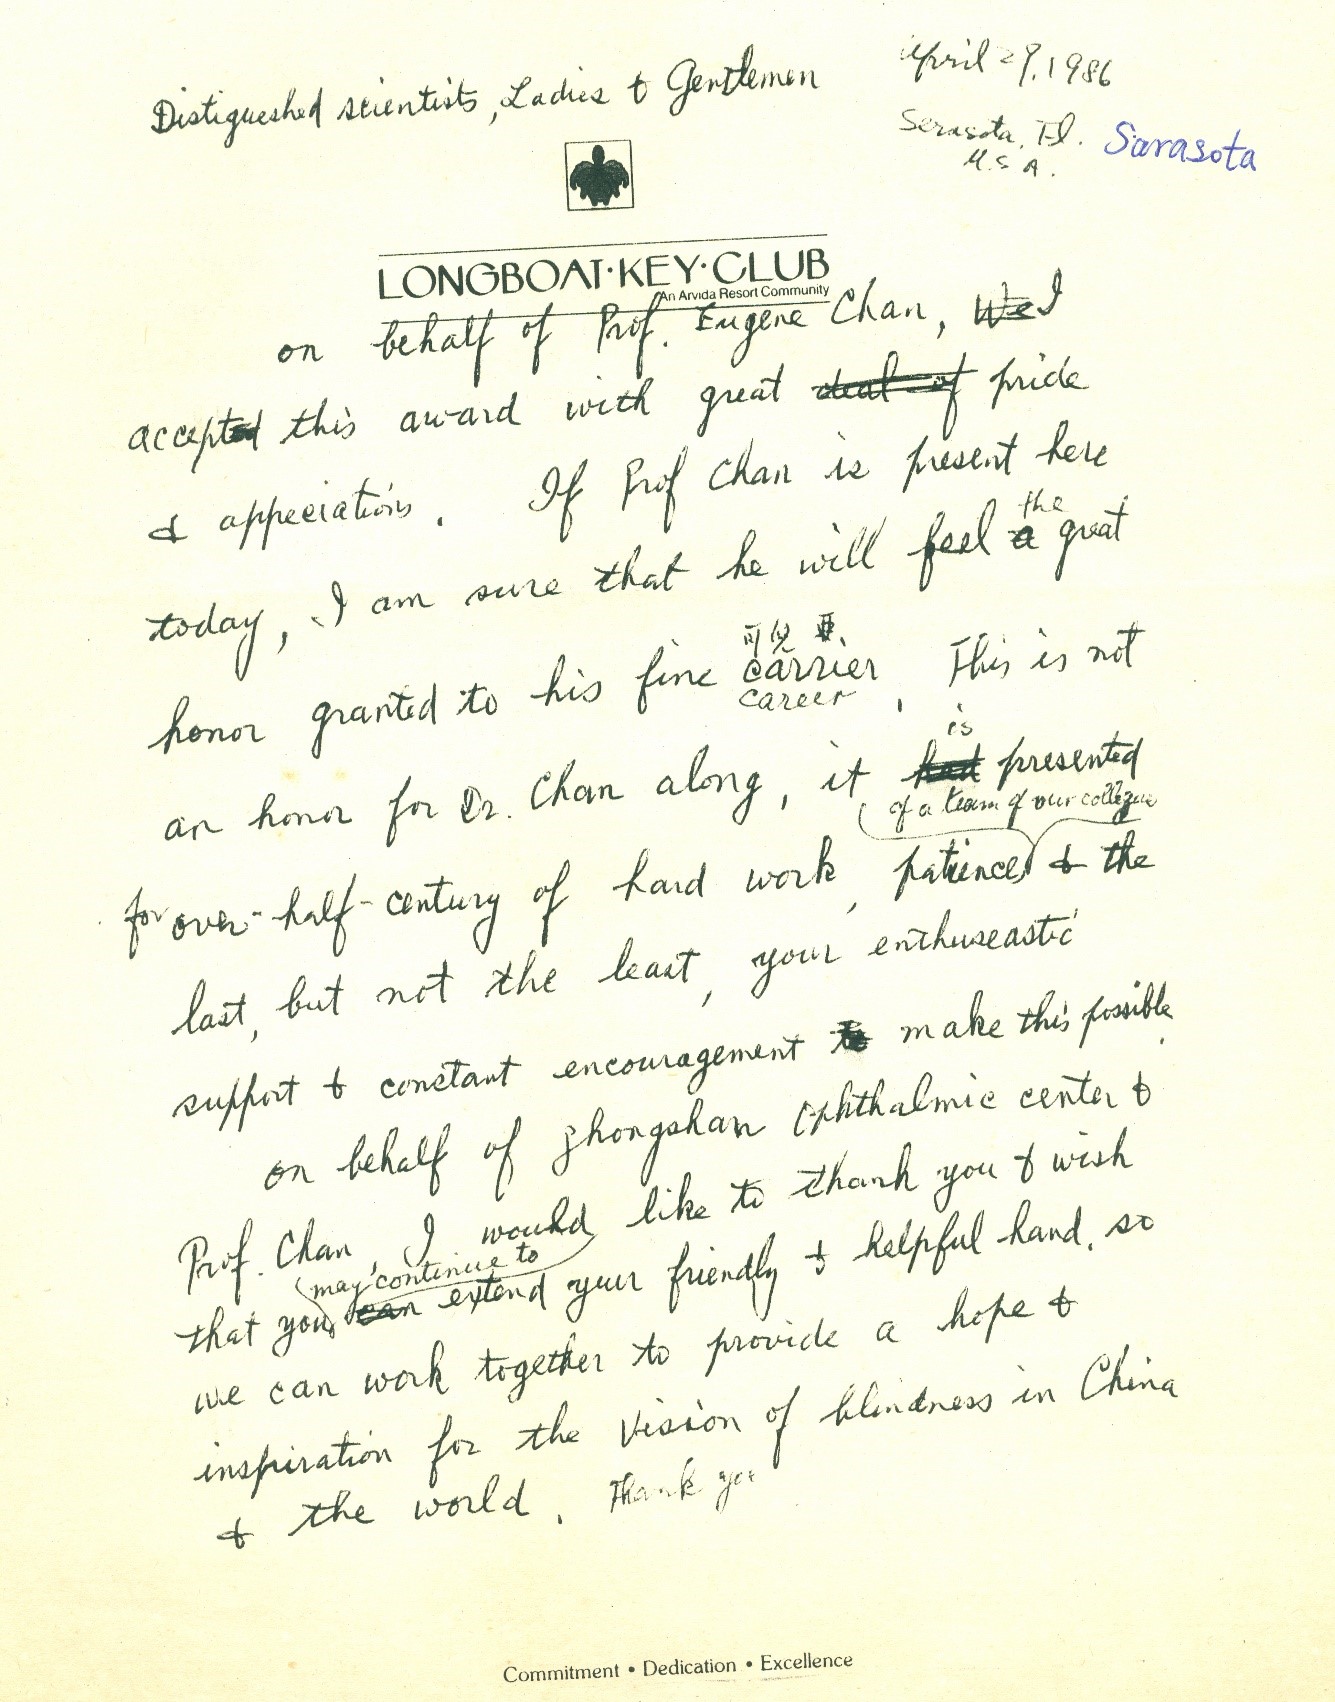 April 29, 1986
Distigueshed scientists, Ladies & Gentlemen
Serasota, Fl. Sarasota
U.S.A.
LONGBOAT·KEY·CLUB
An Arvida Resort Community
on behalf of Prof. Eugene Chan, We I
accepted this award with great deal of pride
& appeciation. If Prof Chan is present here
the
today, I am sure that he will feel a great
可能
honor granted to his fine carrier. This is not
career
is
an honor for Dr. Chan along, it had presented
of a team of our collegue
for over-half-century of hard work, patience, & the
last, but not the least, your enthuseastic
support & constant encouragement to make this possible.
on behalf of Zhongshan Ophthalmic center &
Prof. Chan, I would like to thank you & wish
may continue to
that you can extend your friendly & helpful hand, so
we can work together to provide a hope &
inspiration for the vision of blindness in China
& the world. Thank you
Commitment • Dedication • Excellence